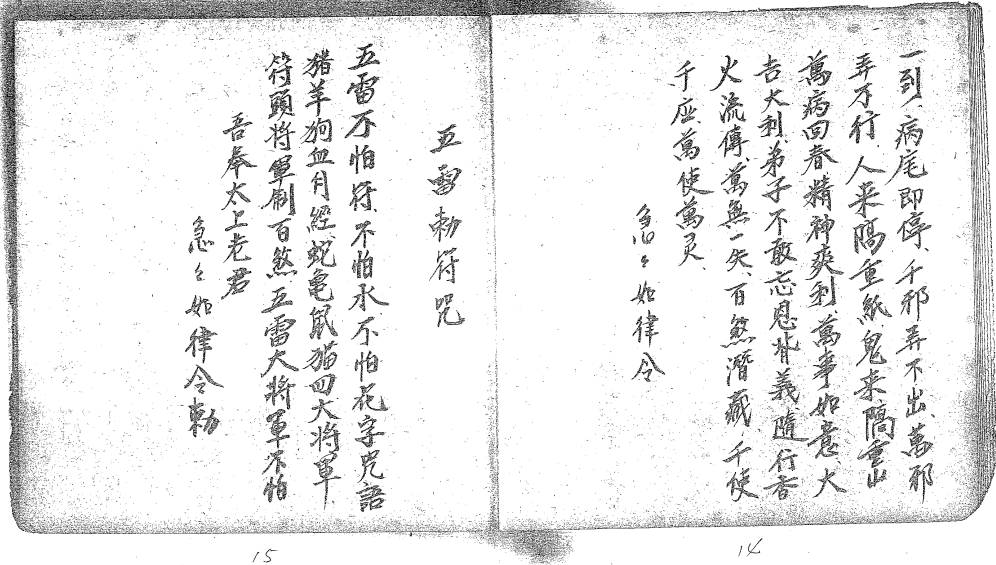 一到、病尾即停、千邪弄不出、萬邪
弄不行、人來隔重紙、鬼來隔重山
萬病回春、精神爽利、萬事如意、大
吉大利、弟子不敢忘恩背義、隨行香
火流傳、萬無一失、百煞潛藏、千使
千應、萬使萬灵、
急々如律令
14
五雷勅符咒
五雷不怕符、不怕水、不怕花字咒語
豬羊狗血月經、蛇亀鼠猫四大將軍
符頭將軍制百煞、五雷大將軍不怕
吾奉太上老君
急々如律令勅
15